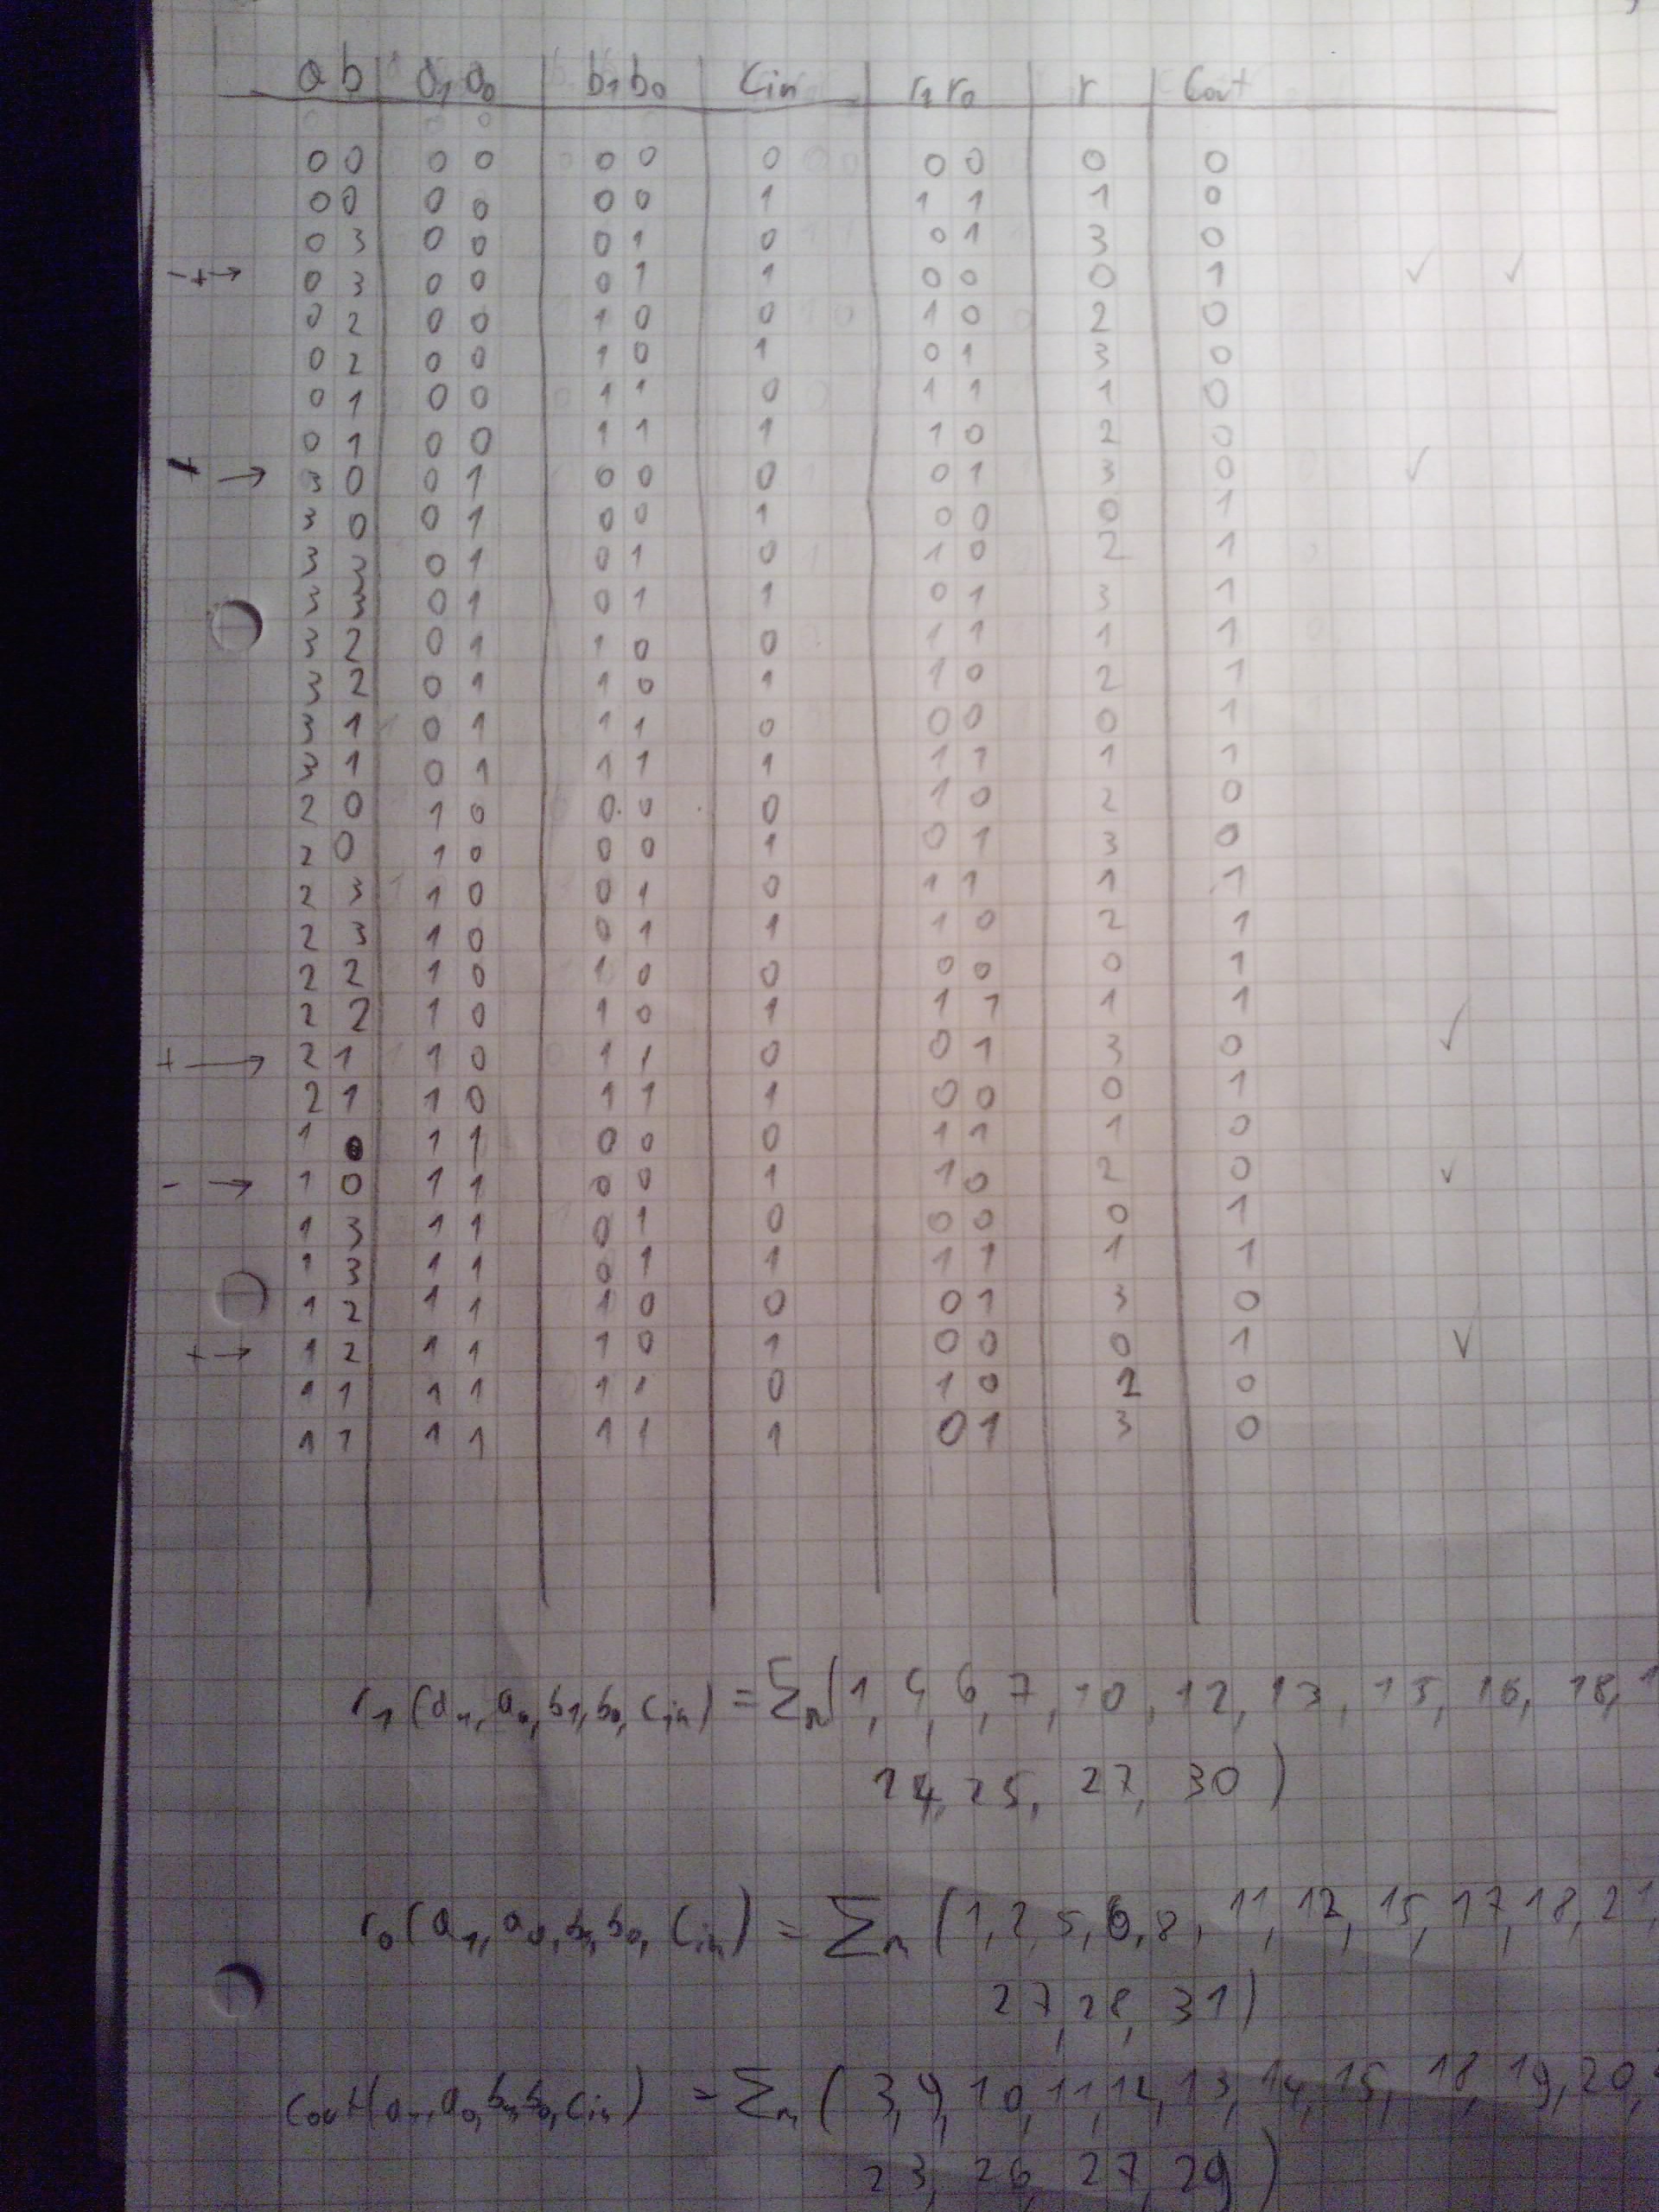 a b | a₁ a₀ | b₁ b₀ | Cin | r₁ r₀ | r | Cout
0 0 | 0 0 | 0 0 | 0 | 0 0 | 0 | 0
0 0 | 0 0 | 0 0 | 1 | 1 1 | 1 | 0
0 3 | 0 0 | 0 1 | 0 | 0 1 | 3 | 0
-+→ 0 3 | 0 0 | 0 1 | 1 | 0 0 | 0 | 1 ✓ ✓
0 2 | 0 0 | 1 0 | 0 | 1 0 | 2 | 0
0 2 | 0 0 | 1 0 | 1 | 0 1 | 3 | 0
0 1 | 0 0 | 1 1 | 0 | 1 1 | 1 | 0
0 1 | 0 0 | 1 1 | 1 | 1 0 | 2 | 0
+ → 3 0 | 0 1 | 0 0 | 0 | 0 1 | 3 | 0 ✓
3 0 | 0 1 | 0 0 | 1 | 0 0 | 0 | 1
3 3 | 0 1 | 0 1 | 0 | 1 0 | 2 | 1
3 3 | 0 1 | 0 1 | 1 | 0 1 | 3 | 1
3 2 | 0 1 | 1 0 | 0 | 1 1 | 1 | 1
3 2 | 0 1 | 1 0 | 1 | 1 0 | 2 | 1
3 1 | 0 1 | 1 1 | 0 | 0 0 | 0 | 1
3 1 | 0 1 | 1 1 | 1 | 1 1 | 1 | 1
2 0 | 1 0 | 0 0 | 0 | 1 0 | 2 | 0
2 0 | 1 0 | 0 0 | 1 | 0 1 | 3 | 0
2 3 | 1 0 | 0 1 | 0 | 1 1 | 1 | 1
2 3 | 1 0 | 0 1 | 1 | 1 0 | 2 | 1
2 2 | 1 0 | 1 0 | 0 | 0 0 | 0 | 1
2 2 | 1 0 | 1 0 | 1 | 1 1 | 1 | 1
+ → 2 1 | 1 0 | 1 1 | 0 | 0 1 | 3 | 0 ✓
2 1 | 1 0 | 1 1 | 1 | 0 0 | 0 | 1
1 0 | 1 1 | 0 0 | 0 | 1 1 | 1 | 0
- → 1 0 | 1 1 | 0 0 | 1 | 1 0 | 2 | 0 ✓
1 3 | 1 1 | 0 1 | 0 | 0 0 | 0 | 1
1 3 | 1 1 | 0 1 | 1 | 1 1 | 1 | 1
1 2 | 1 1 | 1 0 | 0 | 0 1 | 3 | 0
+→ 1 2 | 1 1 | 1 0 | 1 | 0 0 | 0 | 1 ✓
1 1 | 1 1 | 1 1 | 0 | 1 0 | 2 | 0
1 1 | 1 1 | 1 1 | 1 | 0 1 | 3 | 0
r₁(a₁, a₀, b₁, b₀, Cin) = Σm(1, 4, 6, 7, 10, 12, 13, 15, 16, 18,
24, 25, 27, 30)
r₀(a₁, a₀, b₁, b₀, Cin) = Σm(1, 2, 5, 6, 8, 11, 12, 15, 17, 18, 21,
27, 28, 31)
Cout(a₁, a₀, b₁, b₀, Cin) = Σm(3, 9, 10, 11, 12, 13, 14, 15, 18, 19, 20,
23, 26, 27, 29)